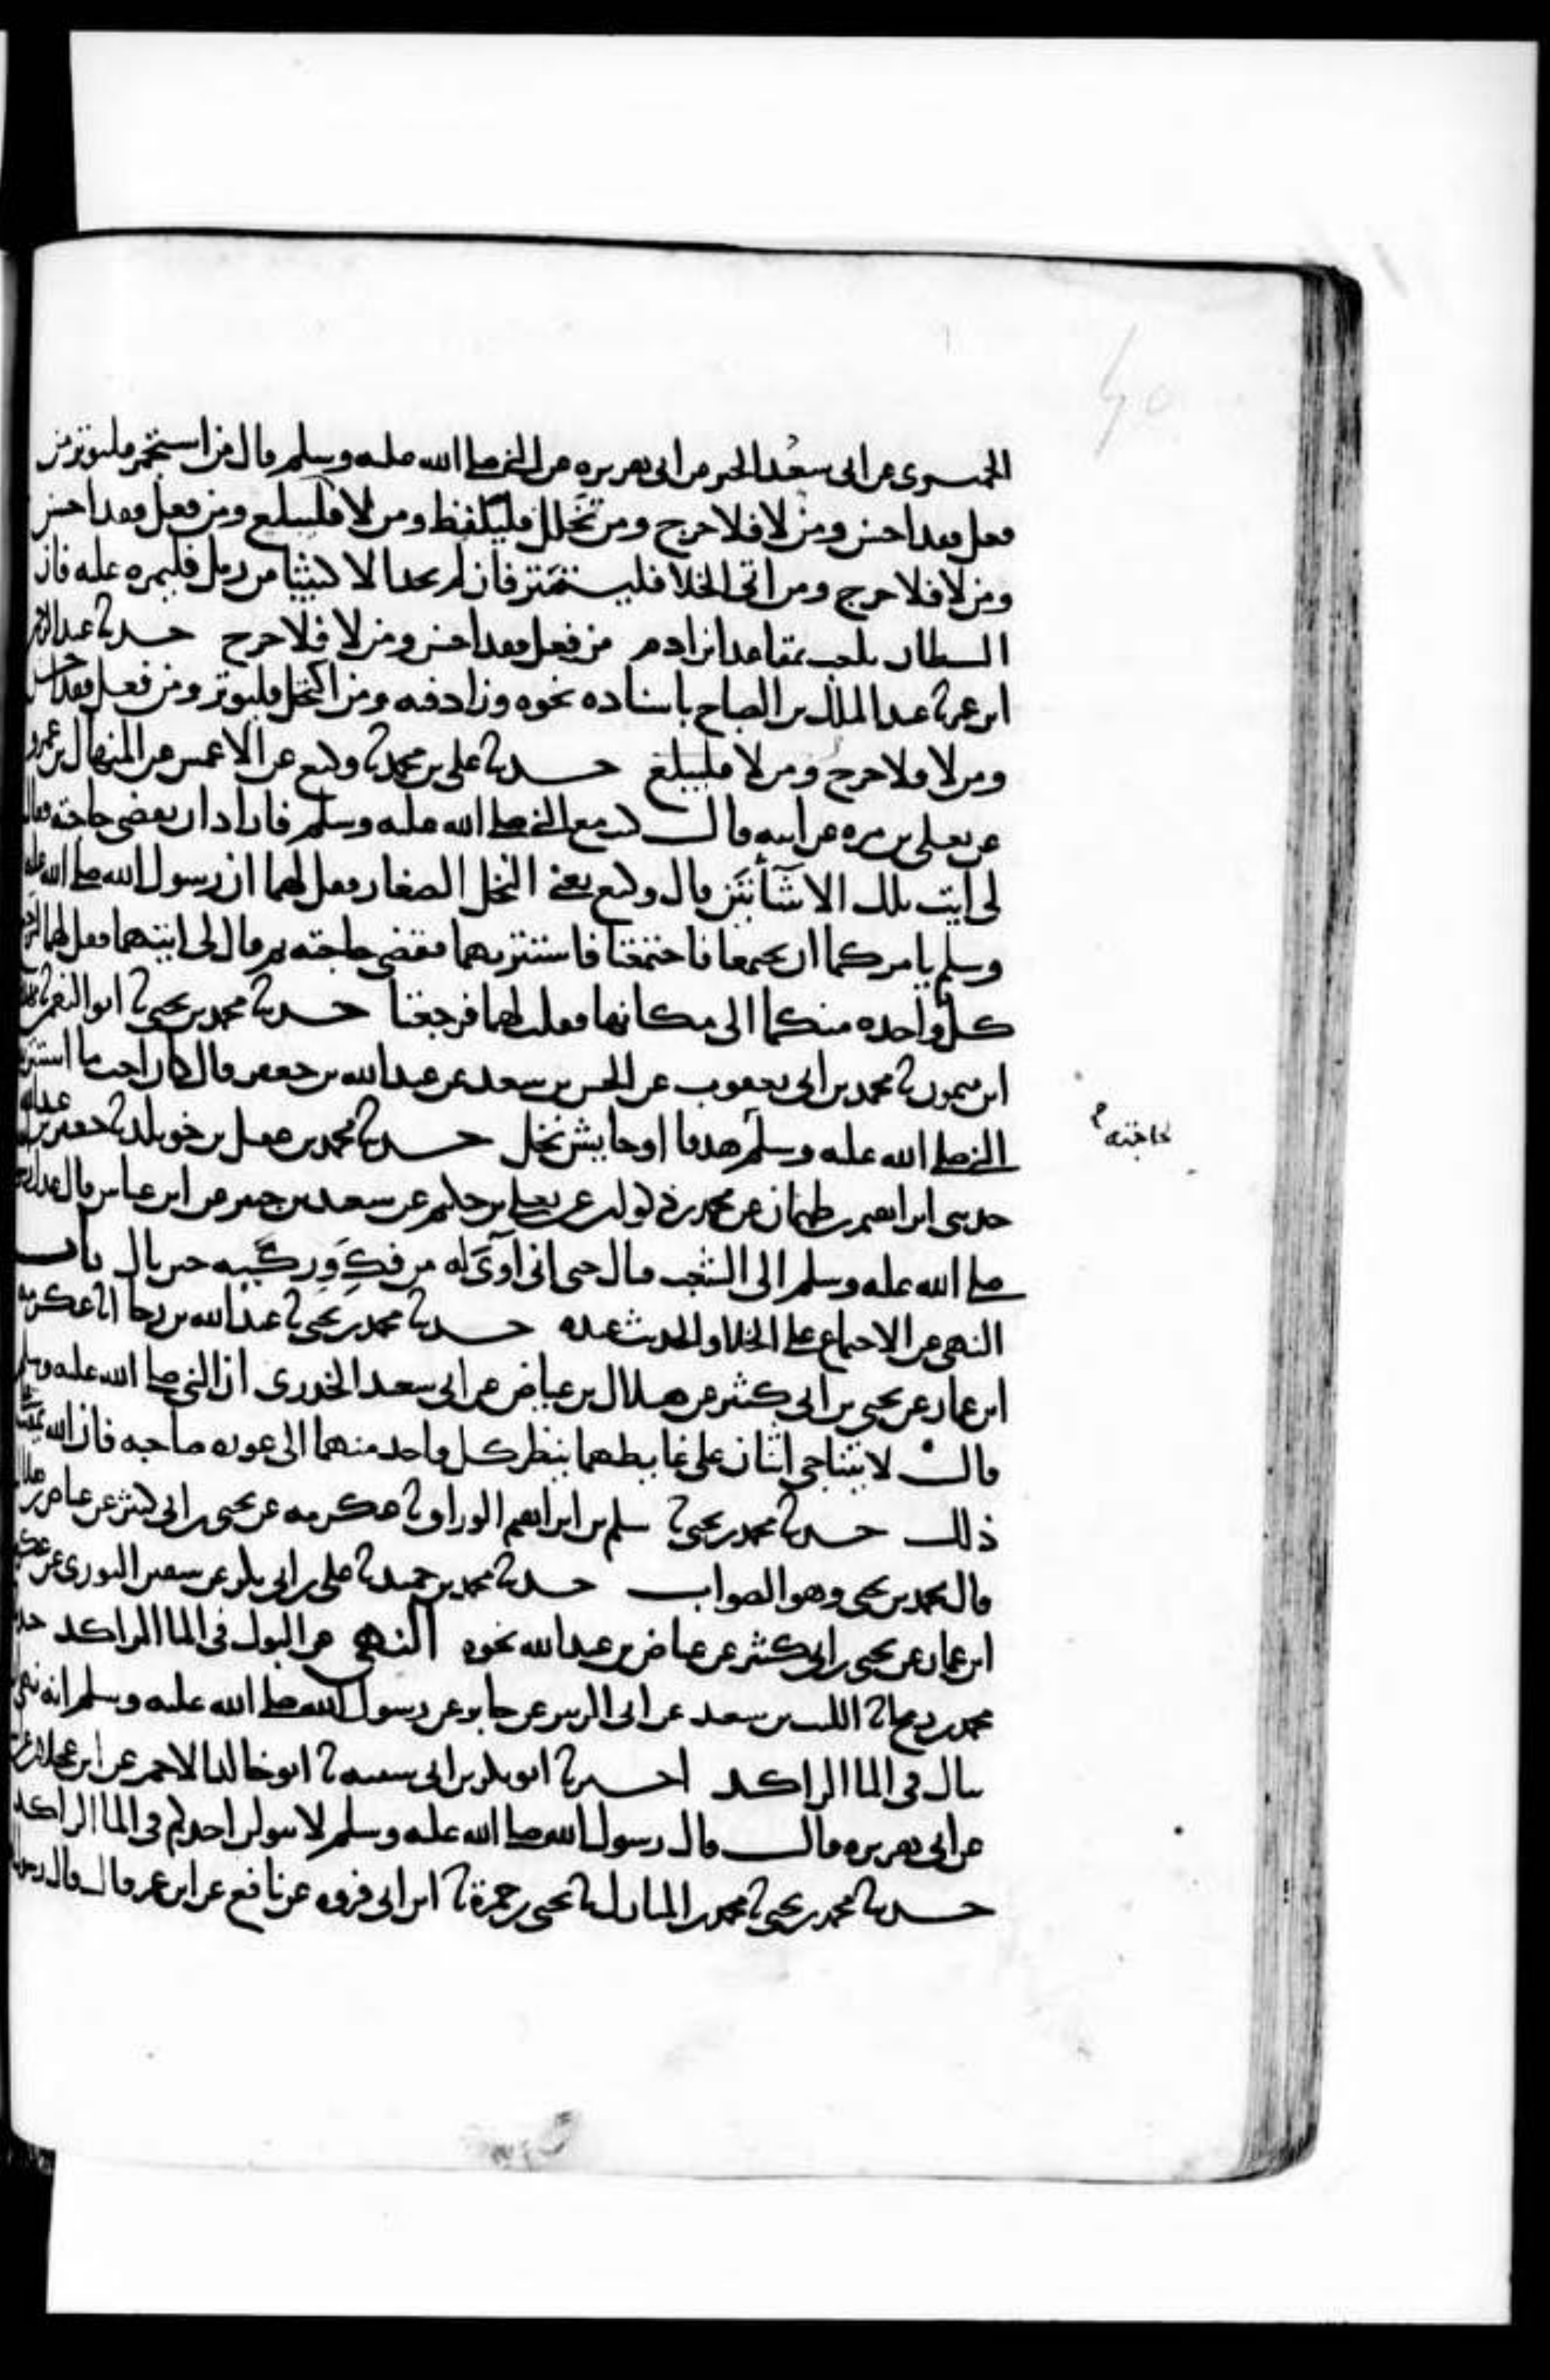 الحميري عن ابي سعد الخير عن ابي هريره عن النبي صلى الله عليه وسلم قال من استجمر فليوتر من
فعل فقد احسن ومن لا فلا حرج ومن تخلل فليلفظ ومن لاك فليبتلع ومن فعل فقد احسن
ومن لا فلا حرج ومن اتى الخلا فليستتر فان لم يجد الا كثيبا من رمل فليمره عليه فان
الشيطان يلعب بمقاعد ابن ادم من فعل فقد احسن ومن لا فلا حرج حدثنا عبد الرحمن
ابن عمر نا عبد الملك بن الصباح باسناده نحوه وزاد فيه ومن اكتحل فليوتر ومن فعل فقد احسن
ومن لا فلا حرج ومن لاك فليبتلع حدثنا علي بن محمد نا وكيع عن الاعمش عن المنهال بن عمرو
عن يعلى بن مره عن ابيه قال كنت مع النبي صلى الله عليه وسلم فاراد ان يقضي حاجته فقال
لي ايت تلك الاشآتين قال وكيع يعني النخل الصغار فقل لهما ان رسول الله صلى الله عليه
وسلم يامركما ان تجتمعا فاجتمعتا فاستتر بهما فقضى حاجته ثم قال لي ايتهما فقل لهما لترجع
كل واحده منكما الى مكانها فقلت لهما فرجعتا حدثنا محمد بن يحيى نا ابو النعمن نا مهدي
ابن ميمون نا محمد بن ابي يعقوب عن الحسن بن سعد عن عبد الله بن جعفر قال كان احب ما استتر به
النبي صلى الله عليه وسلم هدفا او حايش نخل حدثنا محمد بن عقيل بن خويلد نا حفص بن عبد الله
لحاجته
حدثني ابراهيم بن طهمان عن محمد بن ذكوان عن يعلى بن حكيم عن سعيد بن جبير عن ابن عباس قال عدل رسول الله
صلى الله عليه وسلم الى الشعب فبال حتى اني آوى له من فك وركيه حين بال باب
النهي عن الاجتماع على الخلا والحديث عنده حدثنا محمد بن يحيى نا عبد الله بن رجا انا عكرمه
ابن عمار عن يحيى بن ابي كثير عن هلال بن عياض عن ابي سعيد الخدري ان النبي صلى الله عليه وسلم
قال لا يتناجى اثنان على غايطهما ينظر كل واحد منهما الى عوره صاحبه فان الله يمقت على
ذلك حدثنا محمد بن يحيى نا سلم بن ابراهيم الوراق نا عكرمه عن يحيى بن ابي كثير عن عياض بن هلال
قال محمد بن يحيى وهو الصواب حدثنا محمد بن حميد نا علي بن ابي بكر عن سفين الثوري عن عكرمه
ابن عمار عن يحيى بن ابي كثير عن عياض بن عبد الله نحوه النهي عن البول في الما الراكد حدثنا
محمد بن رمح انا الليث بن سعد عن ابي الزبير عن جابر عن رسول الله صلى الله عليه وسلم انه نهى ان
يبال في الما الراكد اخبرنا ابو بكر بن ابي شيبه نا ابو خالد الاحمر عن ابن عجلان عن ابيه
عن ابي هريره قال قال رسول الله صلى الله عليه وسلم لا يبولن احدكم في الما الراكد
حدثنا محمد بن يحيى نا محمد بن المبارك نا يحيى بن حمزة نا ابن ابي فروه عن نافع عن ابن عمر قال قال رسول